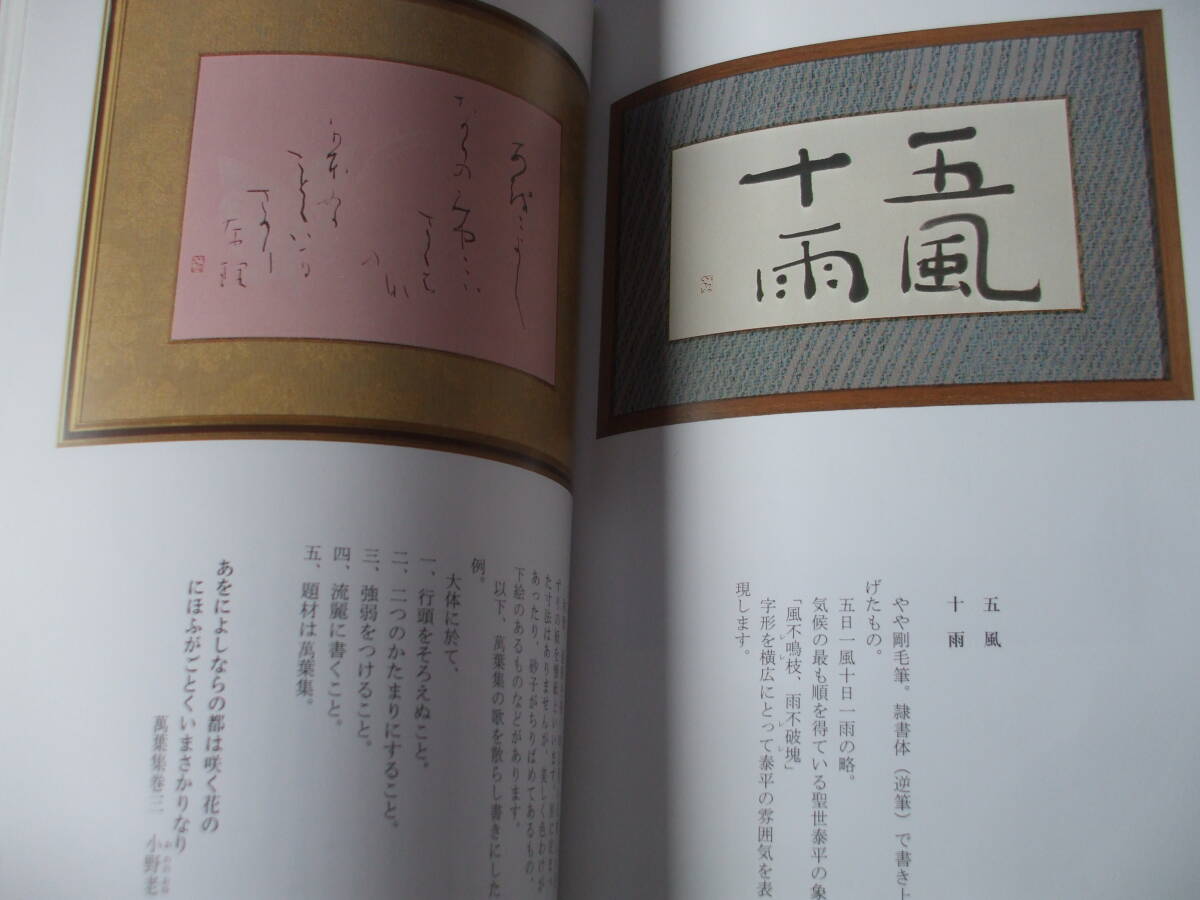 五風
十雨
五風
十雨
やや剛毛筆。隷書体(逆筆)で書き上
げたもの。
五日一風十日一雨の略。
気候の最も順を得ている聖世泰平の象
「風不鳴枝、雨不破塊」
字形を横広にとって泰平の雰囲気を表
現します。
たす法はありませんが、美しく色わけが
あったり、砂子がちりばめてあるもの、
下絵のあるものなどがあります。
以下、萬葉集の歌を散らし書きにした
例。
大体に於て、
一、行頭をそろえぬこと。
二、二つのかたまりにすること。
三、強弱をつけること。
四、流麗に書くこと。
五、題材は萬葉集。
あをによしならの都は咲く花の
にほふがごとくいまさかりなり
萬葉集巻三 小野老